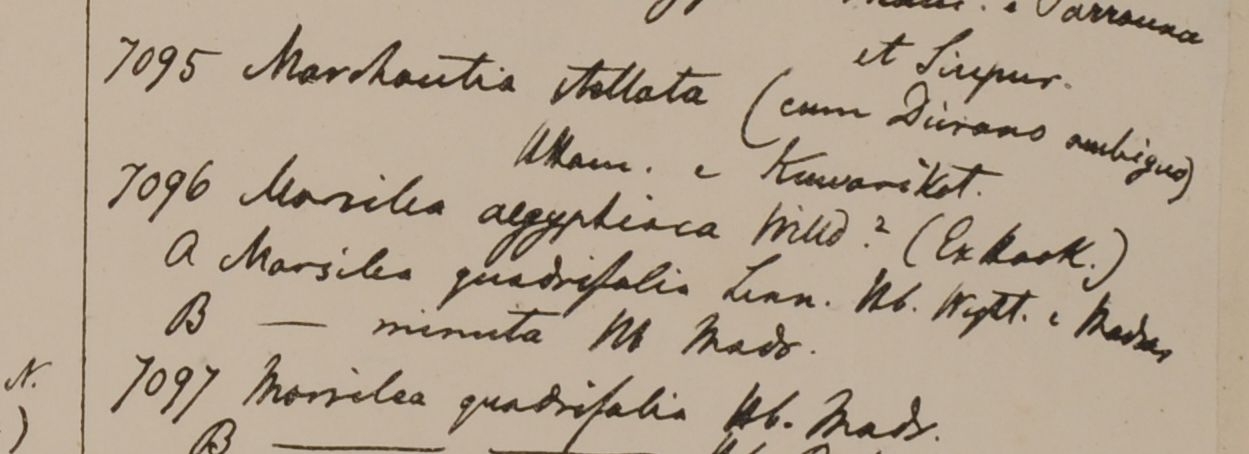 Parrouna
et Sirpur.
7095 Marchantia stellata (cum Dicrano ambiguo)
HHam. e Kuwariket.
7096 Marsilea aegyptiaca Willd.? (Ex Hook.)
A Marsilea quadrifolia Linn. Hb. Wight. e Madras
B — minuta Hb Madr.
N. 7097 Marsilea quadrifolia Hb. Madr.
) B — —